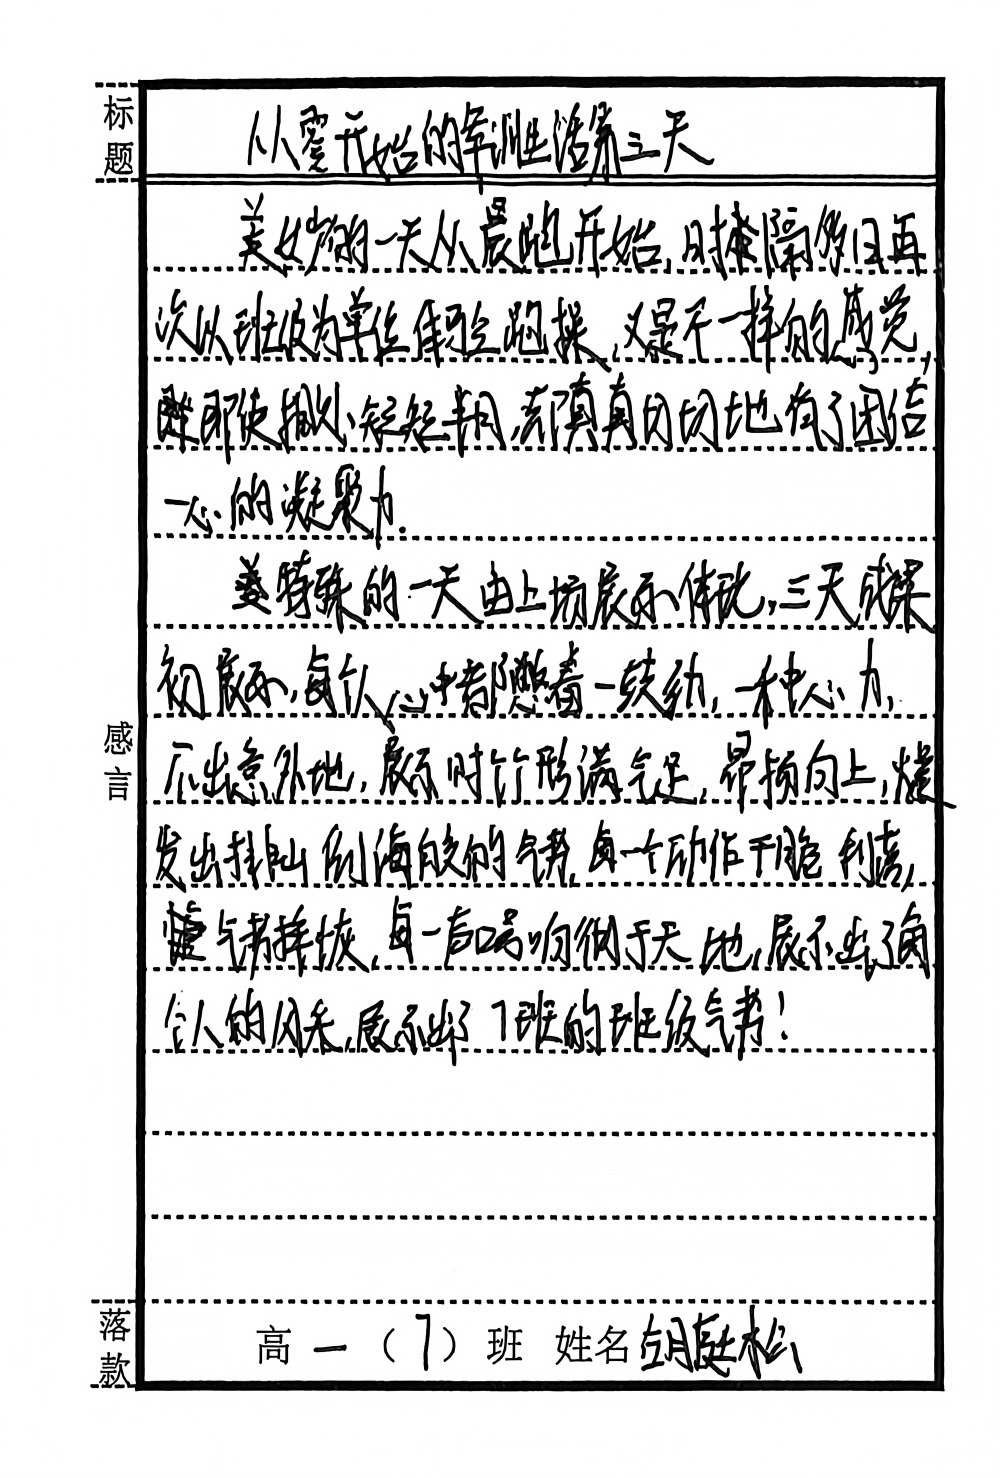 标题
从零开始的军训生活第三天
美好的一天从晨跑开始,时隔多日再
次以班级为单位集合跑操,又是不一样的感觉,
即使排队短短半月,却真真切切地有了团结
一心的凝聚力.
美特殊的一天由上场展示体现,三天成果
初展示,每个人心中都憋着一鼓劲,一种心力,
不出意外地,展示时竹形满气足,昂扬向上,爆
发出排山倒海般的气势,每一个动作干脆利落,
气势挥恢,每一声口号响彻于天地,展示出了每
个人的风采,展示出了7班的班级气势!
感言
落款
高一(7)班 姓名胡庭松